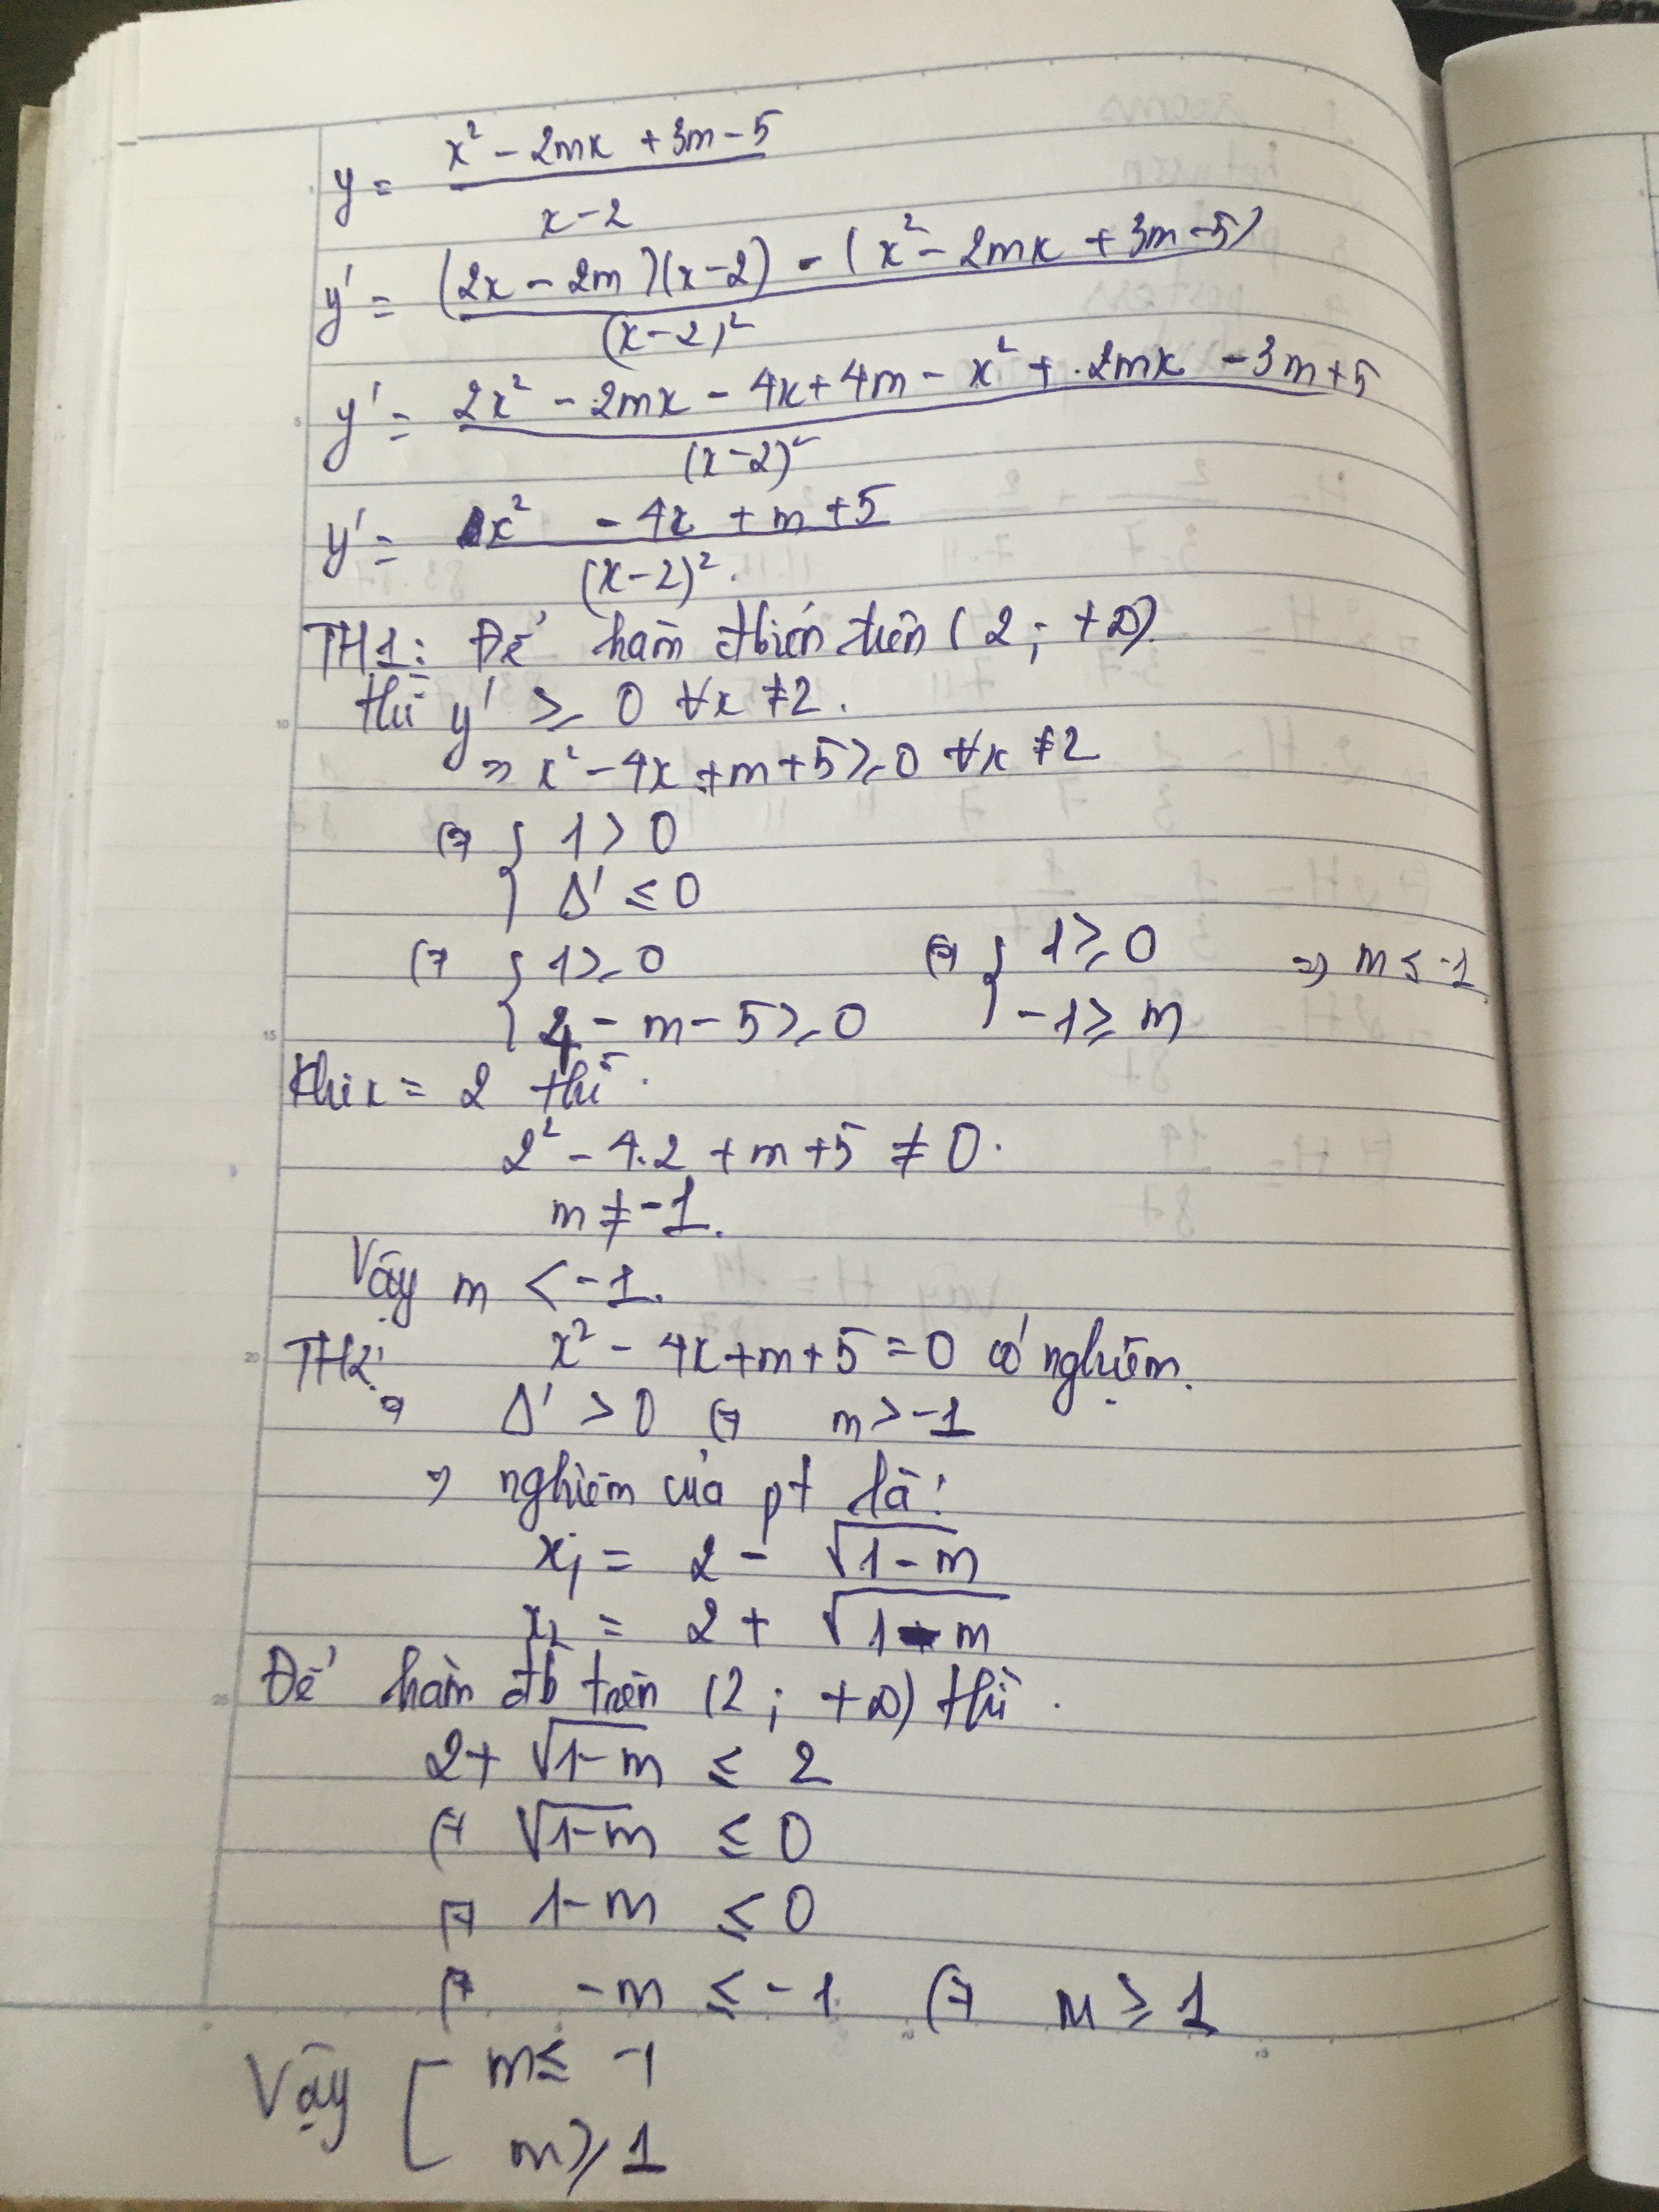 y = (x² - 2mx + 3m - 5) / (x - 2)
y' = ((2x - 2m)(x - 2) - (x² - 2mx + 3m - 5)) / (x - 2)²
y' = (2x² - 2mx - 4x + 4m - x² + 2mx - 3m + 5) / (x - 2)²
y' = (x² - 4x + m + 5) / (x - 2)².
TH1: Để hàm đbiến trên (2; +∞)
thì y' ≥ 0 ∀x ≠ 2.
⇒ x² - 4x + m + 5 ≥ 0 ∀x ≠ 2
⇔ { 1 > 0
Δ' ≤ 0
⇔ { 1 ≥ 0 ⇔ { 1 ≥ 0 ⇒ m ≤ -1
4 - m - 5 ≥ 0 -1 ≥ m
Khi x = 2 thì
2² - 4.2 + m + 5 ≠ 0.
m ≠ -1.
Vậy m < -1.
TH2: x² - 4x + m + 5 = 0 có nghiệm.
Δ' > 0 ⇔ m > -1
⇒ nghiệm của pt là:
x₁ = 2 - √(1 - m)
x₂ = 2 + √(1 - m)
Để hàm đb trên (2; +∞) thì.
2 + √(1 - m) ≤ 2
⇔ √(1 - m) ≤ 0
⇔ 1 - m ≤ 0
⇔ -m ≤ -1 ⇔ m ≥ 1
Vậy [ m ≤ -1
m ≥ 1